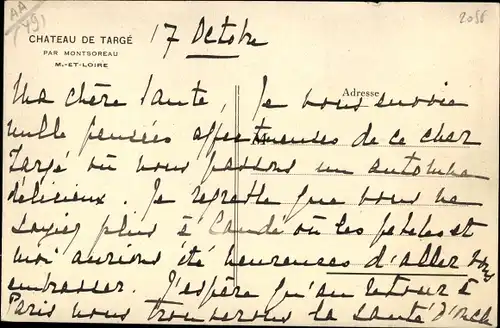 AA
(49)
2056
CHATEAU DE TARGÉ
PAR MONTSOREAU
M.-ET-LOIRE
17 Octobre
Adresse
Ma chère tante, Je vous envoie
mille pensées affectueuses de ce cher
Targé où nous passons un automne
délicieux. Je regrette que vous ne
soyiez plus à Candé où les fêtes et
moi aurions été heureuses d'aller vous
embrasser. J'espère qu'au retour à
Paris nous trouverons la santé d'oncle